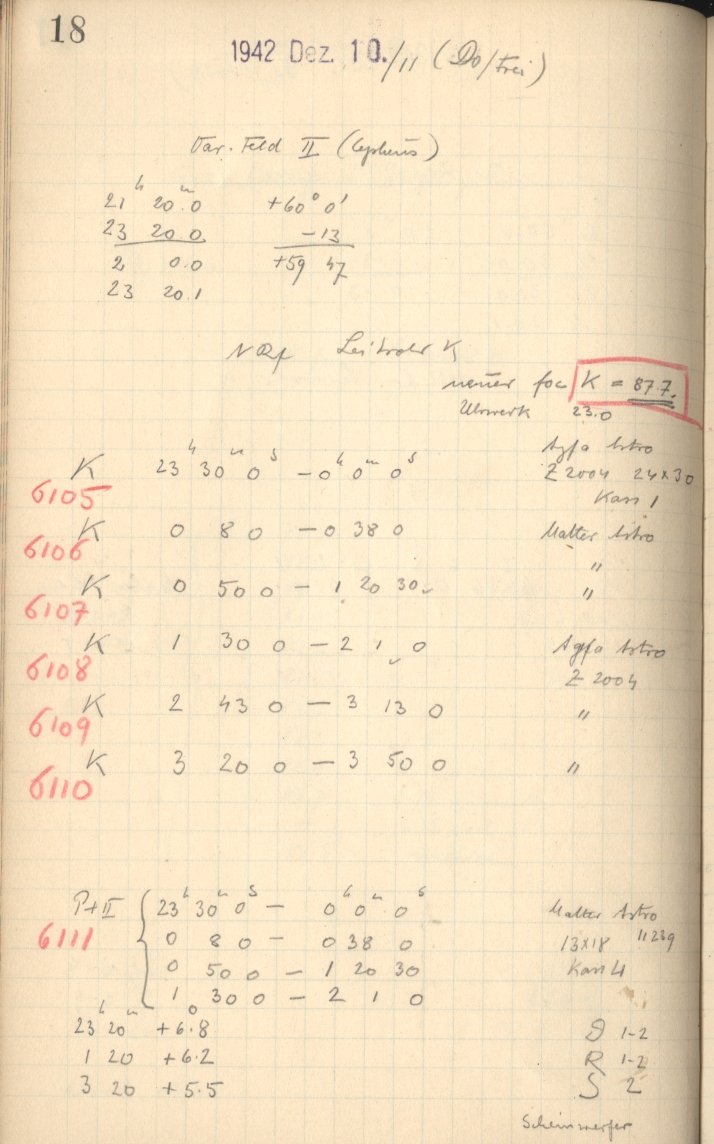 18
1942 Dez. 10./11 (Do/Frei)
Var. Feld II (Cepheus)
21ʰ 20ᵐ.0 +60° 0'
23 20 0 -13
2 0.0 +59 47
23 20.1
Leitrohr K
neuer foc K = 87.7.
Uhrwerk 23.0
Agfa Astro
K 23ʰ 30ᵐ 0ˢ - 0ʰ 0ᵐ 0ˢ Z 2004 24×30
6105 Kass 1
K 0 8 0 - 0 38 0 Matter Astro
6106 "
K 0 50 0 - 1 20 30 "
6107
K 1 30 0 - 2 1 0 Agfa Astro
6108 Z 2004
K 2 43 0 - 3 13 0 "
6109
K 3 20 0 - 3 50 0 "
6110
P+II 23ʰ 30ᵐ 0ˢ - 0ʰ 0ᵐ 0ˢ Matter Astro
6111 0 8 0 - 0 38 0 13×18 11239
0 50 0 - 1 20 30 Kass 4
1 30 0 - 2 1 0
23ʰ 20ᵐ +6°.8 D 1-2
1 20 +6.2 R 1-2
3 20 +5.5 S 2
Scheinwerfer